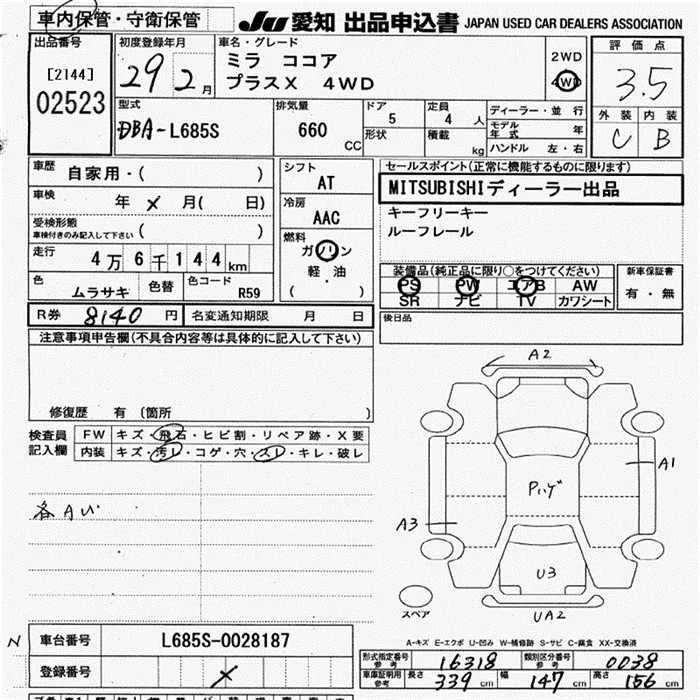 車内保管・守衛保管
JU 愛知 出品申込書 JAPAN USED CAR DEALERS ASSOCIATION
出品番号
[2144]
02523
初度登録年月
29 2 月
車名・グレード
ミラ ココア
プラスX 4WD
2WD
4WD
評価点
3.5
外装 内装
C B
型式
DBA-L685S
排気量
660
CC
ドア
5
定員
4 人
形状
積載
kg
ディーラー・並行
モデル年式 年
ハンドル 左・右
車歴
自家用・( )
車検
年 × 月( 日)
受検形態
車検付きのみ記入して下さい ( )
走行
4万6千144 km
色
ムラサキ
色替
色コード
R59
シフト
AT
冷房
AAC
燃料
ガソリン
軽・油
( )
セールスポイント(正常に機能するものに限ります)
MITSUBISHIディーラー出品
キーフリーキー
ルーフレール
装備品(純正品に限り○をつけてください)
PS PW エアB AW
SR ナビ TV カワシート
新車保証書
有・無
R券 8140 円
名変通知期限 月 日
後日品
注意事項申告欄(不具合内容等は具体的に記入して下さい)
修復歴 有(箇所 )
検査員記入欄
FW キズ・飛石・ヒビ割・リペア跡・X要
内装 キズ・汚レ・コゲ・穴・スレ・キレ・破レ
各AU
A2
A1
Pハゲ
A3
U3
UA2
スペア
A-キズ E-エクボ U-凹み W-補修跡 S-サビ C-腐食 XX-交換済
N
車台番号 L685S-0028187
登録番号 ×
形式指定番号 参考 16318
類別区分番号 参考 0038
車庫証明用 参考 長さ 339 cm 幅 147 cm 高さ 156 cm